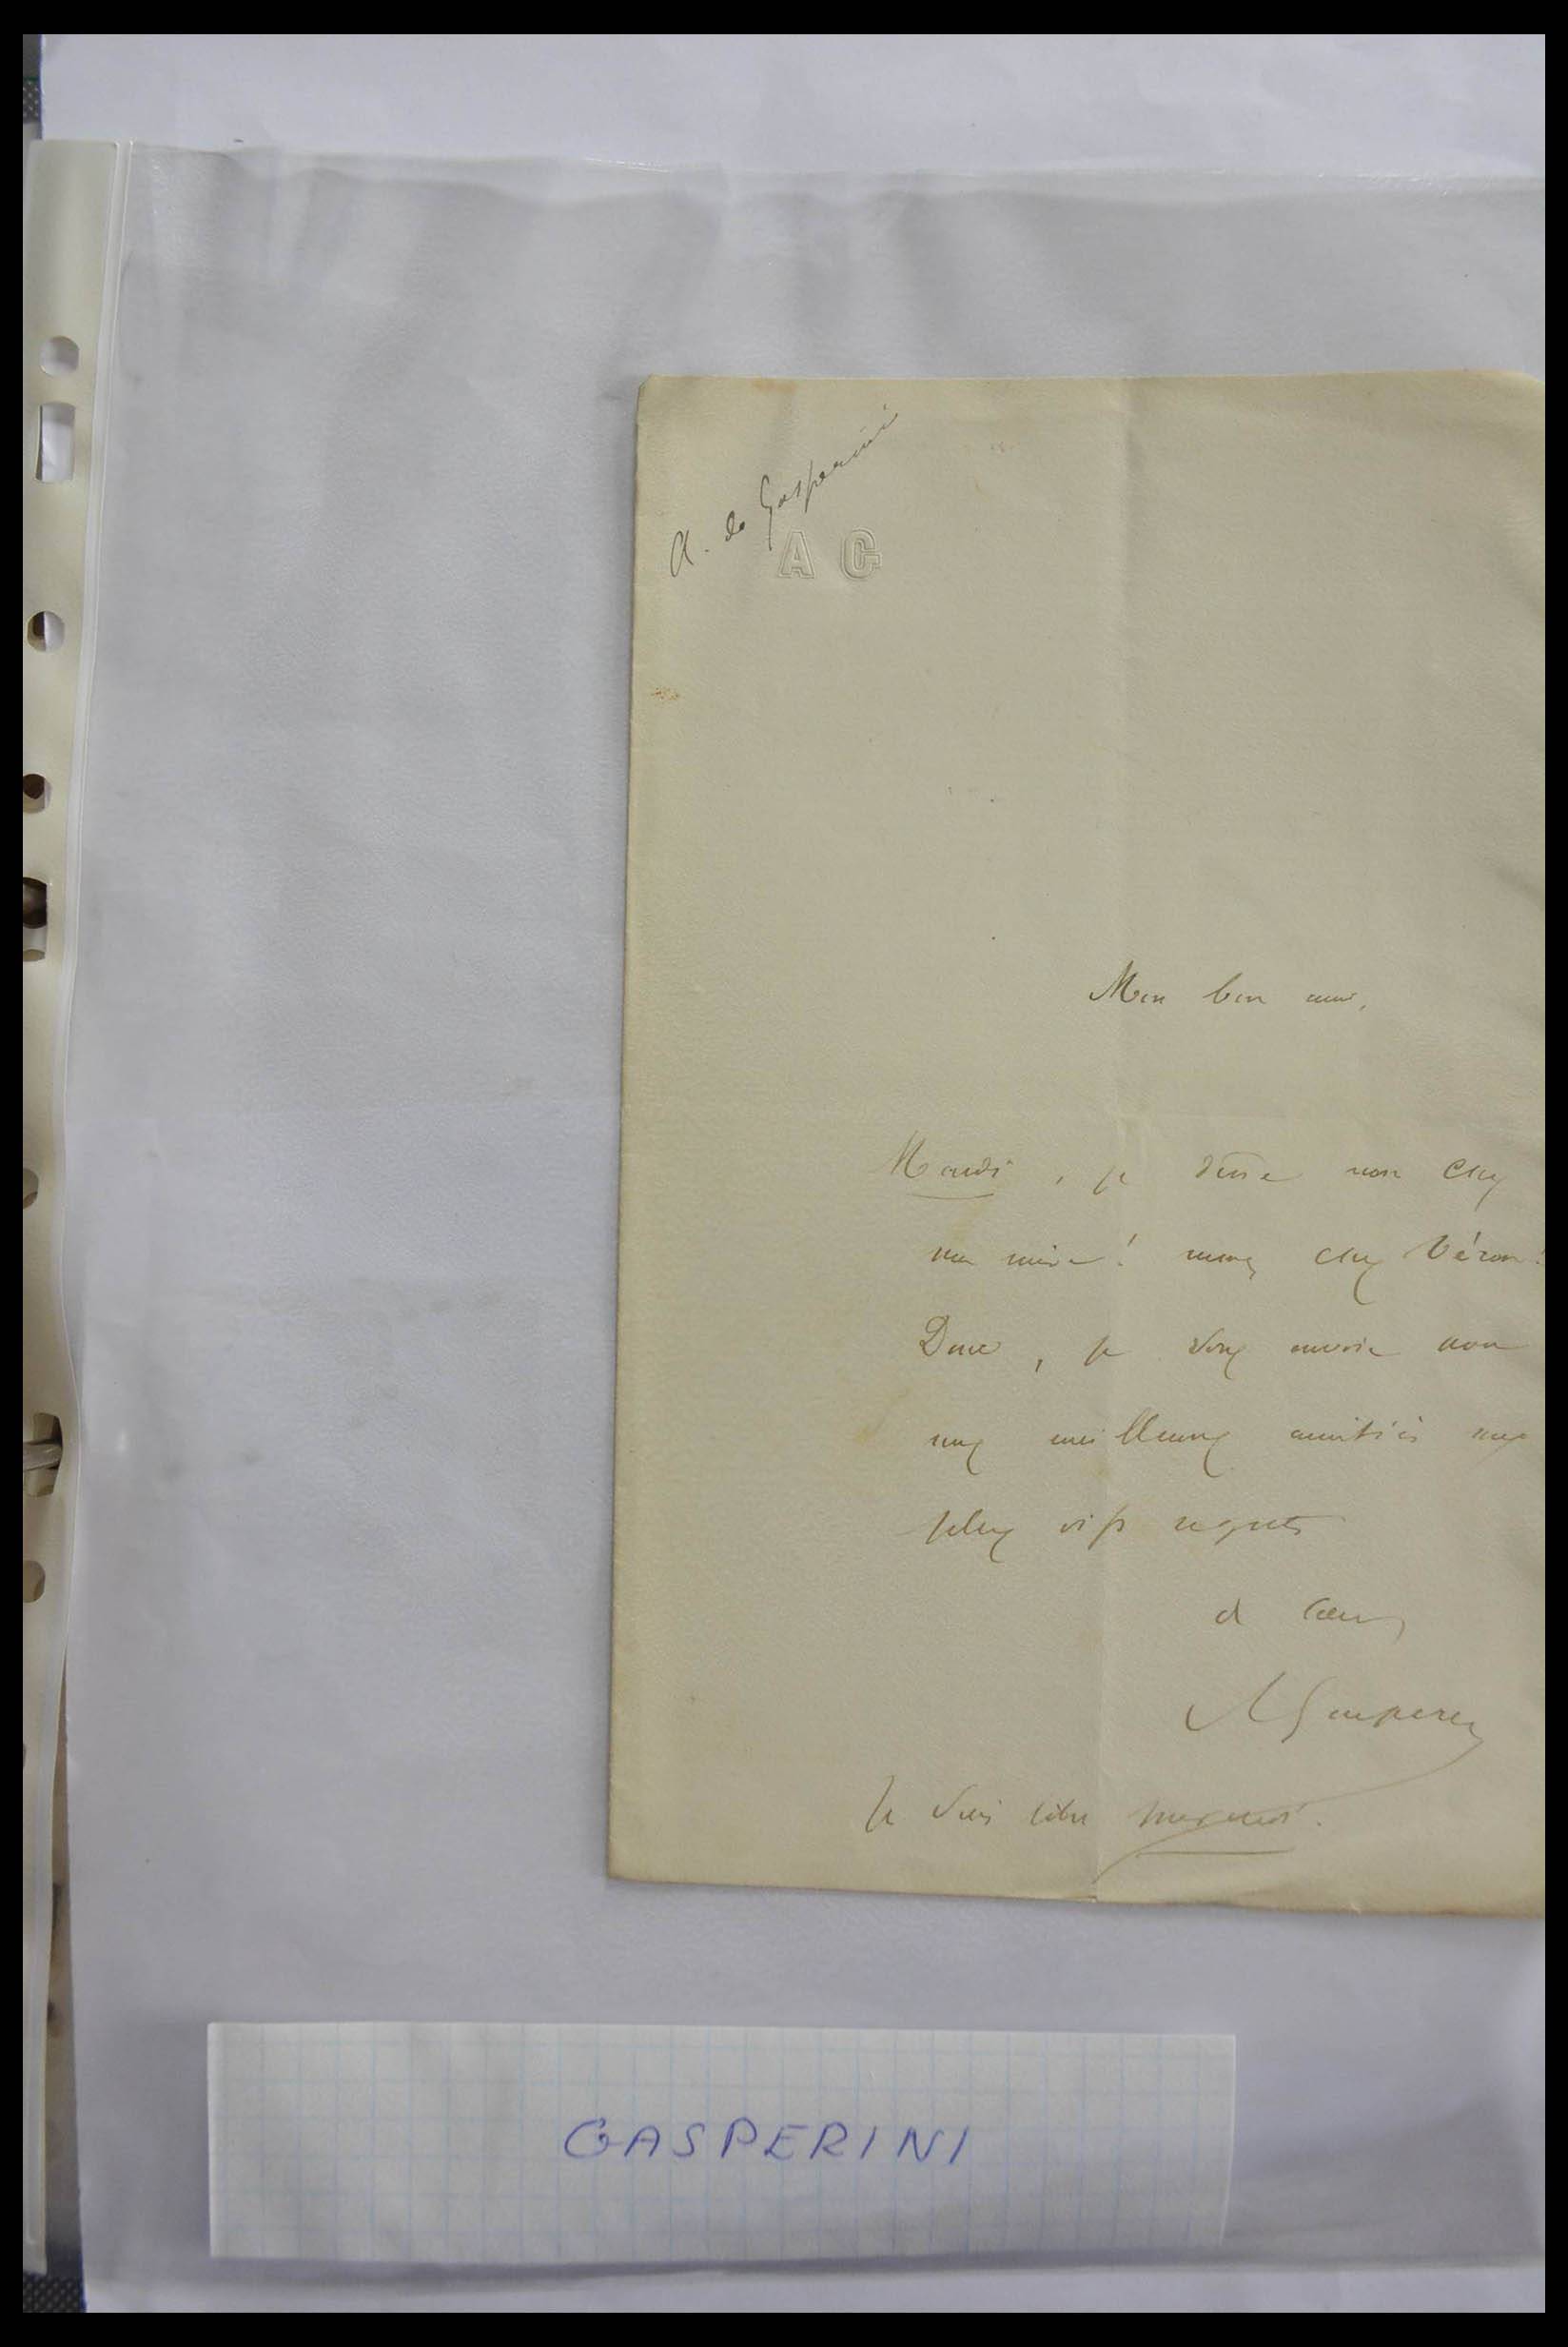 A. de Gasperini
A G
Mon bon ami,
Mardi, je dine non chez
ma mère! mais chez Véron!
Donc, je vous envoie avec
mes meilleures amitiés mes
plus vifs regrets
de cœur
AGasperini
Je suis libre mercredi.
GASPERINI